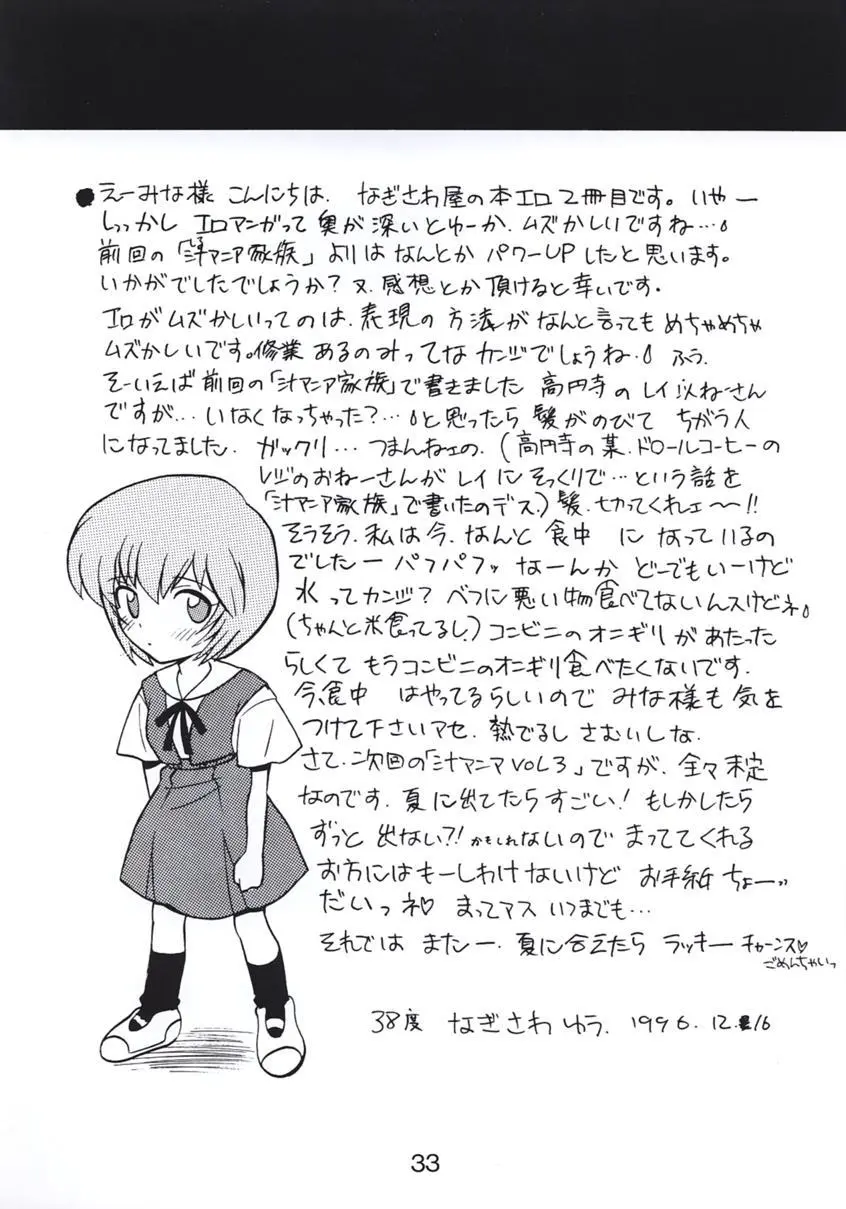 ●えーみな様 こんにちは、なぎさわ屋の本エロ2冊目です。いやー
しっかし エロマンガって奥が深いとゆーか、ムズかしいですね…
前回の「汁マニア家族」よりは なんとか パワーUPしたと思います。
いかがでしたでしょうか？又、感想とか頂けると幸いです。
エロがムズかしいってのは、表現の方法がなんと言ってもめちゃめちゃ
ムズかしいです。修業あるのみってなカンジでしょうね。ふう。
そーいえば前回の「汁マニア家族」で書きました 高円寺のレイ似ねーさん
ですが…いなくなっちゃった？…と思ったら 髪がのびて ちがう人
になってました。ガックリ…つまんねェの。（高円寺の某、ドロールコーヒーの
レジのおねーさんがレイにそっくりで…という話を
「汁マニア家族」で書いたのデス。）髪、切ってくれェ〜!!
そうそう、私は今、なんと 食中 になっているの
でしたー パフパフッ なーんか どーでもいーけど
水ってカンジ？ べつに悪い物食べてないんスけどネ。
（ちゃんと米食ってるし。）コンビニのオニギリがあたった
らしくて もうコンビニのオニギリ食べたくないです。
今、食中 はやってるらしいので みな様も気を
つけて下さいアセ。熱でるし さむいしな。
さて、次回の「汁マニアVOL3」ですが、全々未定
なのです。夏に出てたらすごい！もしかしたら
ずっと 出ない?! かもしれないので まっててくれる
お方にはもーしわけないけど お手紙 ちょーッ
だいっネ♡ まってマス いつまでも…
それでは またー。夏に会えたら ラッキー チャーンス♡
ごめんちゃいっ
38度 なぎさわ ゆう。1996.12.16
33